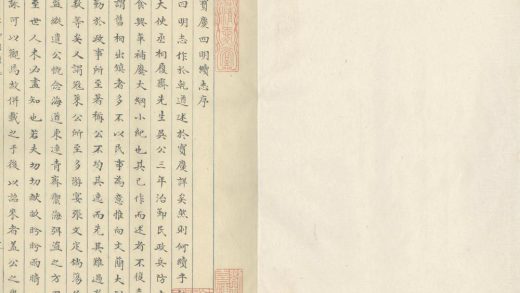 寶慶四明續志序
四明志作於乾道述於寶慶詳矣然則何續乎
大使丞相履齋先生吳公三年治鄞民政兵防士
食興革補廢大綱小紀也其已作而述者不復
謂舊相出鎮者多不以民事為意惟向文簡大
勤於政事所至著稱公不均其逸而先其難過
數等矣又謂寇萊公所至多游宴張文定
盜縱遺公慨念海道東達青齊
至世人未必盡知也若夫切切
詠可以觀焉故併載之于後以詒來者蓋公之